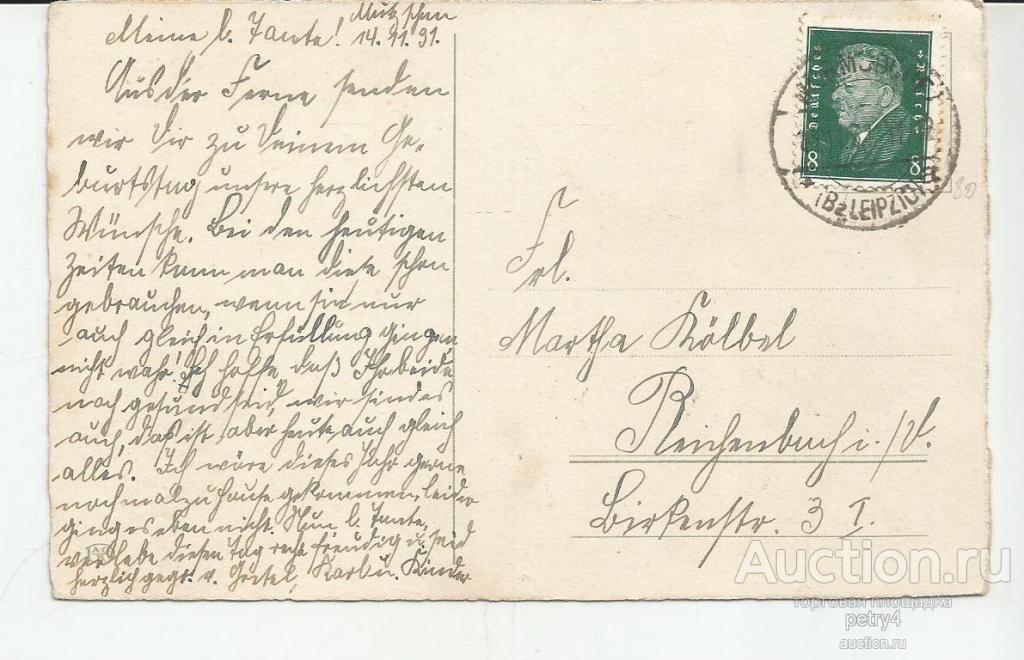 Mutzschen
Meine l. Tante! 14.11.31.
Aus der Ferne senden
wir Dir zu Deinem Ge-
burtstag unsere herzlichsten
Wünsche. Bei den heutigen
Zeiten kann man diese schon
gebrauchen, wenn sie nur
auch gleich in Erfüllung gingen
nicht wahr? Ich hoffe daß Ihr beide
noch gesund seid, wir sind es
auch, das ist aber heute auch gleich
alles. Ich wäre dieses Jahr gerne
noch mal zu Hause gekommen, leider
ging es eben nicht. Nun l. Tante,
verlebe diesen Tag recht freudig u. seid
herzlich gegr. v. u. Kinder
Deutsches Reich
8 8
(Bz LEIPZIG)
80
Frl.
Martha Kölbel
Reichenbach i./V.
Birkenstr. 3 I.
Auction.ru
торговая площадка
petry4
auction.ru